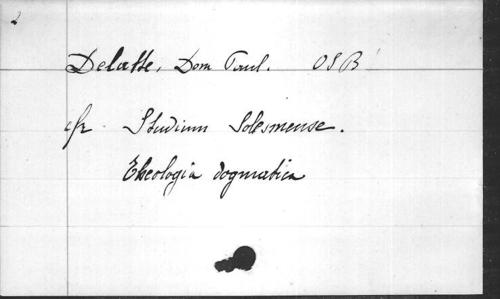 2
Delatte, Dom Paul. OSB
cfr Studium Solesmense.
Theologia dogmatica